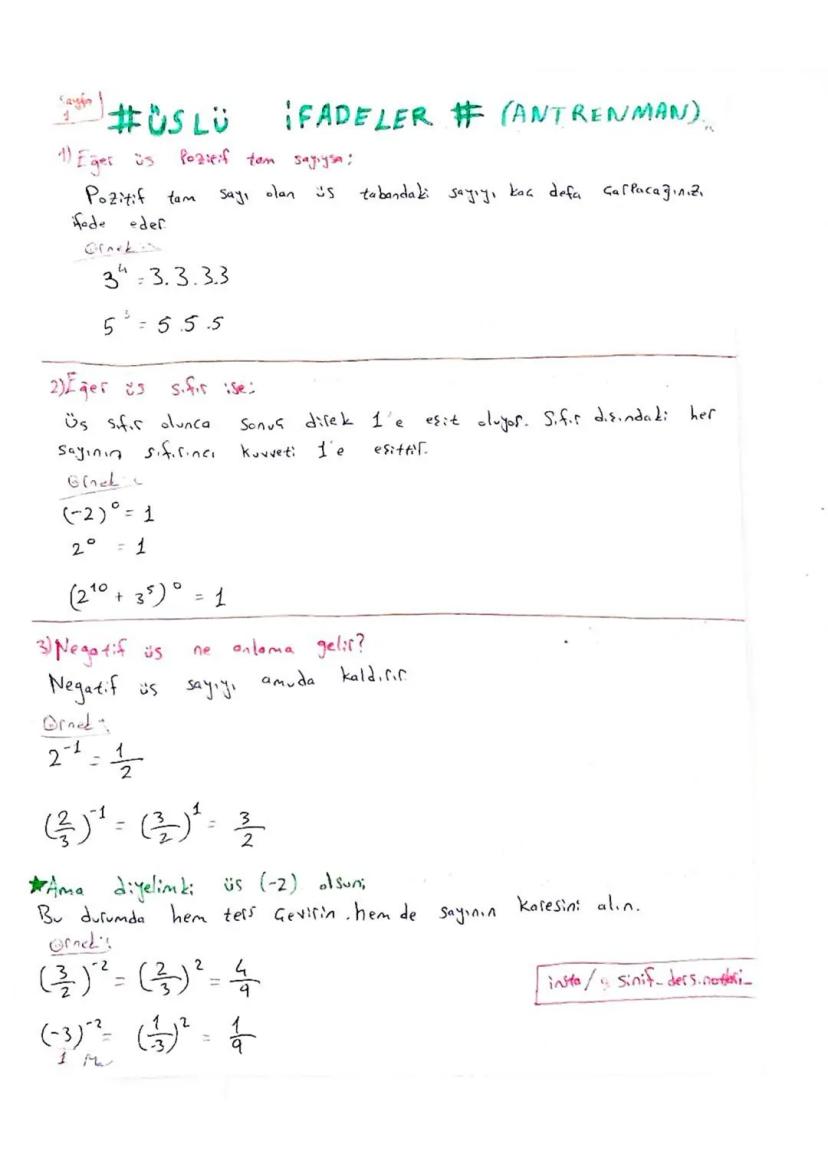 Sayfa 1
#ÜSLÜ İFADELER # (ANTRENMAN)
1) Eğer üs Pozitif tam sayıysa:
Pozitif tam sayı olan üs tabandaki sayıyı kac defa carpacağınızı
ifade eder
Örnek:
3⁴ = 3.3.3.3
5³ = 5.5.5
2) Eğer üs sıfır ise:
Üs sıfır olunca sonuç direk 1'e eşit oluyor. Sıfır dışındaki her
sayının sıfırıncı kuvveti 1'e eşittir.
Örnek:
(-2)⁰ = 1
2⁰ = 1
(2¹⁰ + 3⁵)⁰ = 1
3) Negatif üs ne anlama gelir?
Negatif üs sayıyı amuda kaldırır
Örnek:
2⁻¹ = 1/2
(2/3)⁻¹ = (3/2)¹ = 3/2
★Ama diyelimki üs (-2) olsun;
Bu durumda hem ters çevirin. hem de sayının karesini alın.
Örnek:
(3/2)⁻² = (2/3)² = 4/9
insta/9.sinif_ders.notlari_
(-3)⁻² = (1/-3)² = 1/9
1